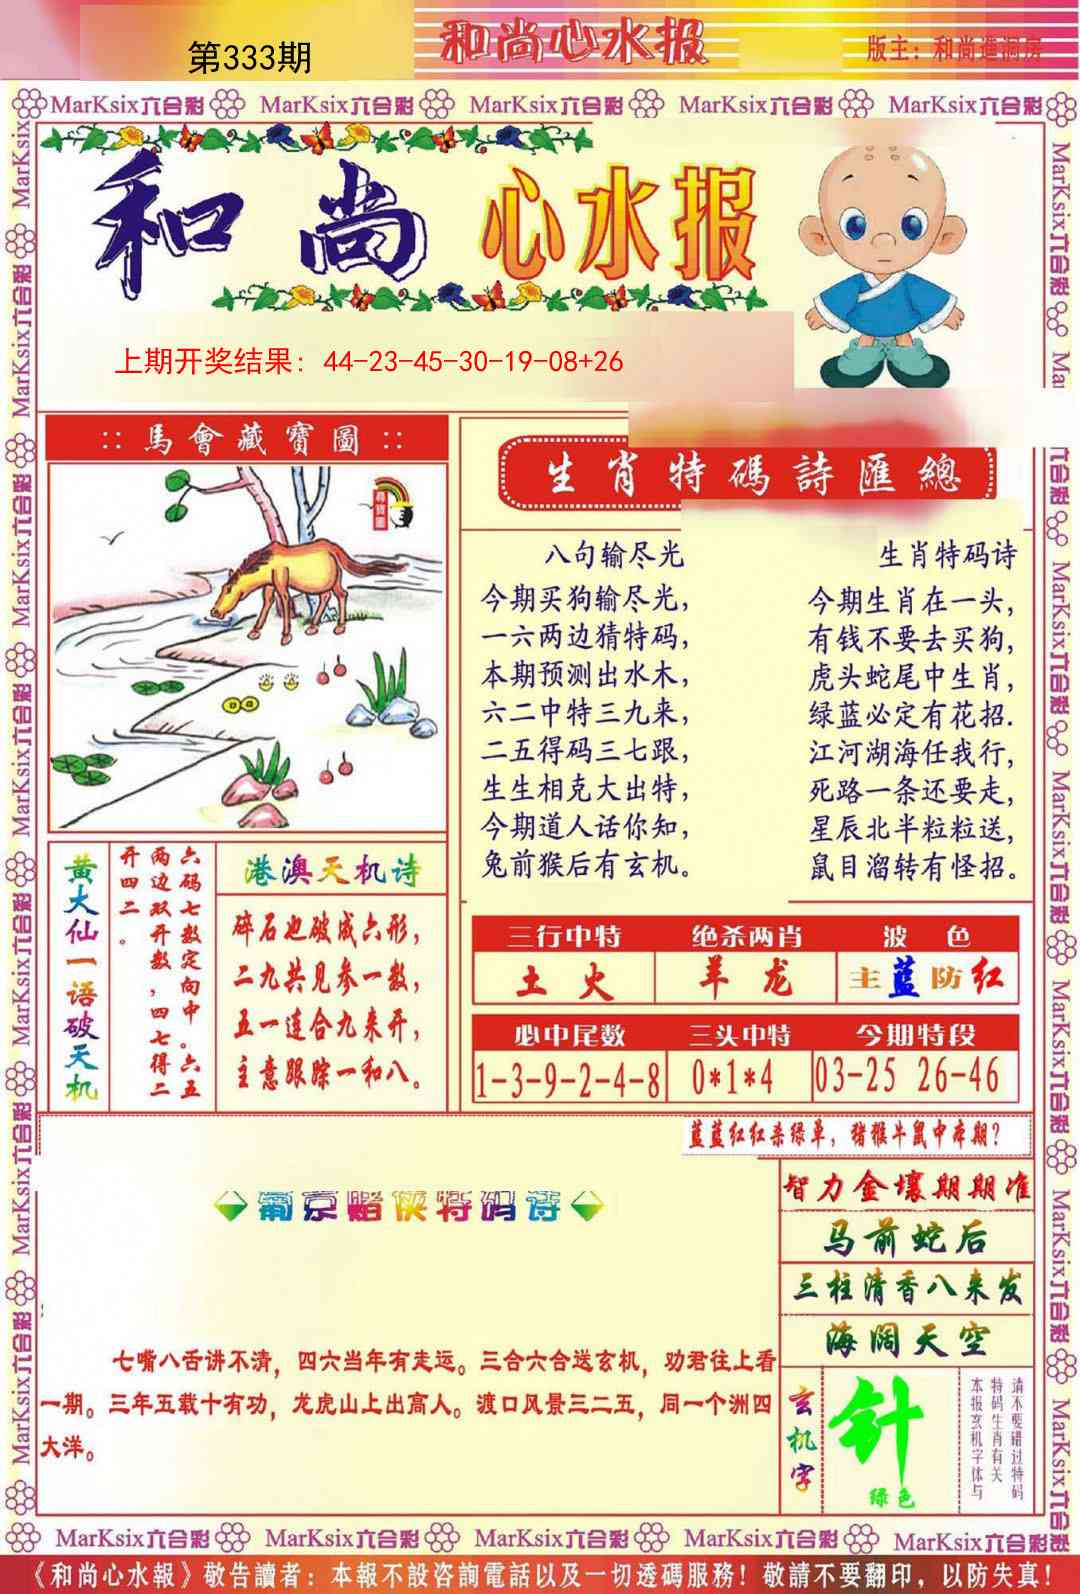 第333期
和尚心水报
版主：和尚進洞房
MarKsix六合彩 MarKsix六合彩 MarKsix六合彩 MarKsix六合彩 MarKsix六合彩
和尚 心水报
上期开奖结果：44-23-45-30-19-08+26
:: 馬會藏寶圖 ::
尋寶圖
生肖特碼詩匯總
八句输尽光
今期买狗输尽光，
一六两边猜特码，
本期预测出水木，
六二中特三九来，
二五得码三七跟，
生生相克大出特，
今期道人话你知，
兔前猴后有玄机。
生肖特码诗
今期生肖在一头，
有钱不要去买狗，
虎头蛇尾中生肖，
绿蓝必定有花招.
江河湖海任我行，
死路一条还要走，
星辰北半粒粒送，
鼠目溜转有怪招。
黄大仙一语破天机
六码七数定向中。六五
两边双开数，四七得二
开四二。
港澳天机诗
碎石也破成六形，
二九共见参一数，
五一连合九来开，
主意跟踪一和八。
三行中特 绝杀两肖 波色
土火 羊龙 主蓝防红
必中尾数 三头中特 今期特段
1-3-9-2-4-8 0*1*4 03-25 26-46
蓝蓝红红杀绿单，猪猴牛鼠中本期？
葡京赌侠特码诗
七嘴八舌讲不清，四六当年有走运。三合六合送玄机，劝君往上看
一期。三年五载十有功，龙虎山上出高人。渡口风景三二五，同一个洲四
大洋。
智力金壤期期准
马前蛇后
三柱清香八来发
海阔天空
玄机字
针
绿色
请不要错过特码
特码生肖有关
本报玄机字体与
MarKsix六合彩 MarKsix六合彩 MarKsix六合彩 MarKsix六合彩 MarKsix六合彩
《和尚心水報》敬告讀者：本報不設咨詢電話以及一切透碼服務！敬請不要翻印，以防失真！